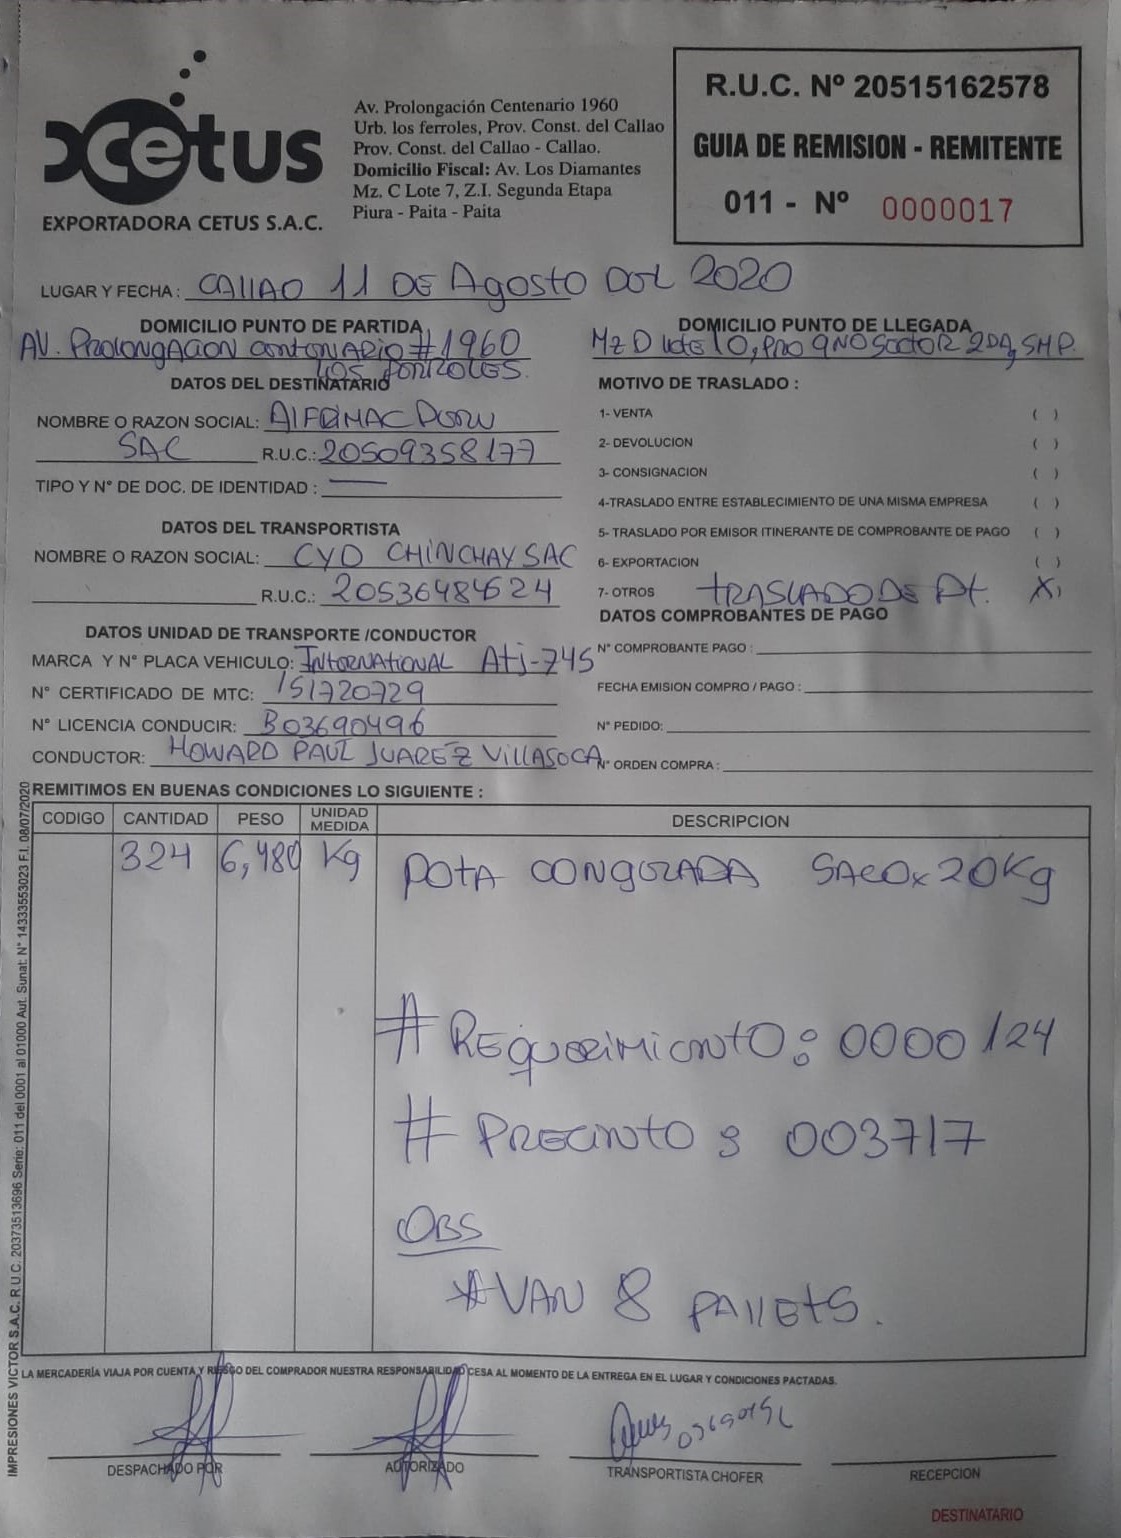 xcetus
EXPORTADORA CETUS S.A.C.
Av. Prolongación Centenario 1960
Urb. los ferroles, Prov. Const. del Callao
Prov. Const. del Callao - Callao.
Domicilio Fiscal: Av. Los Diamantes
Mz. C Lote 7, Z.I. Segunda Etapa
Piura - Paita - Paita
R.U.C. Nº 20515162578
GUIA DE REMISION - REMITENTE
011 - Nº 0000017
LUGAR Y FECHA : CAllAO 11 DE Agosto DEL 2020
DOMICILIO PUNTO DE PARTIDA
AV. PROLONGACION CENTENARIO #1960
LOS FERROLES.
DOMICILIO PUNTO DE LLEGADA
MzD lote 10, PRO 9NO SECTOR 2DA, SMP.
DATOS DEL DESTINATARIO
NOMBRE O RAZON SOCIAL: AIFRIMAC PERU
SAC R.U.C.: 20509358177
TIPO Y N° DE DOC. DE IDENTIDAD : —
DATOS DEL TRANSPORTISTA
NOMBRE O RAZON SOCIAL: CYD CHINCHAY SAC
R.U.C.: 20536484624
DATOS UNIDAD DE TRANSPORTE /CONDUCTOR
MARCA Y N° PLACA VEHICULO: INTERNATIONAL Atj-745
N° CERTIFICADO DE MTC: 151720729
N° LICENCIA CONDUCIR: B03690496
CONDUCTOR: HOWARD PAUL JUAREZ VILLASECA
MOTIVO DE TRASLADO :
1- VENTA ( )
2- DEVOLUCION ( )
3- CONSIGNACION ( )
4-TRASLADO ENTRE ESTABLECIMIENTO DE UNA MISMA EMPRESA ( )
5- TRASLADO POR EMISOR ITINERANTE DE COMPROBANTE DE PAGO ( )
6- EXPORTACION ( )
7- OTROS TRASLADO DE Pt. X
DATOS COMPROBANTES DE PAGO
N° COMPROBANTE PAGO :
FECHA EMISION COMPRO / PAGO :
N° PEDIDO:
N° ORDEN COMPRA :
REMITIMOS EN BUENAS CONDICIONES LO SIGUIENTE :
CODIGO CANTIDAD PESO UNIDAD MEDIDA DESCRIPCION
324 6,480 Kg POTA CONGELADA SACO x 20Kg
# REQUERIMIENTO : 0000124
# PRECINTO : 003717
OBS
* VAN 8 PALLETS.
LA MERCADERÍA VIAJA POR CUENTA Y RIESGO DEL COMPRADOR NUESTRA RESPONSABILIDAD CESA AL MOMENTO DE LA ENTREGA EN EL LUGAR Y CONDICIONES PACTADAS.
DESPACHADO POR
AUTORIZADO
TRANSPORTISTA CHOFER
RECEPCION
DESTINATARIO
IMPRESIONES VICTOR S.A.C. R.U.C. 20373513696 Serie: 011 del 0001 al 01000 Aut. Sunat: N° 14333553023 F.I. 08/07/2020